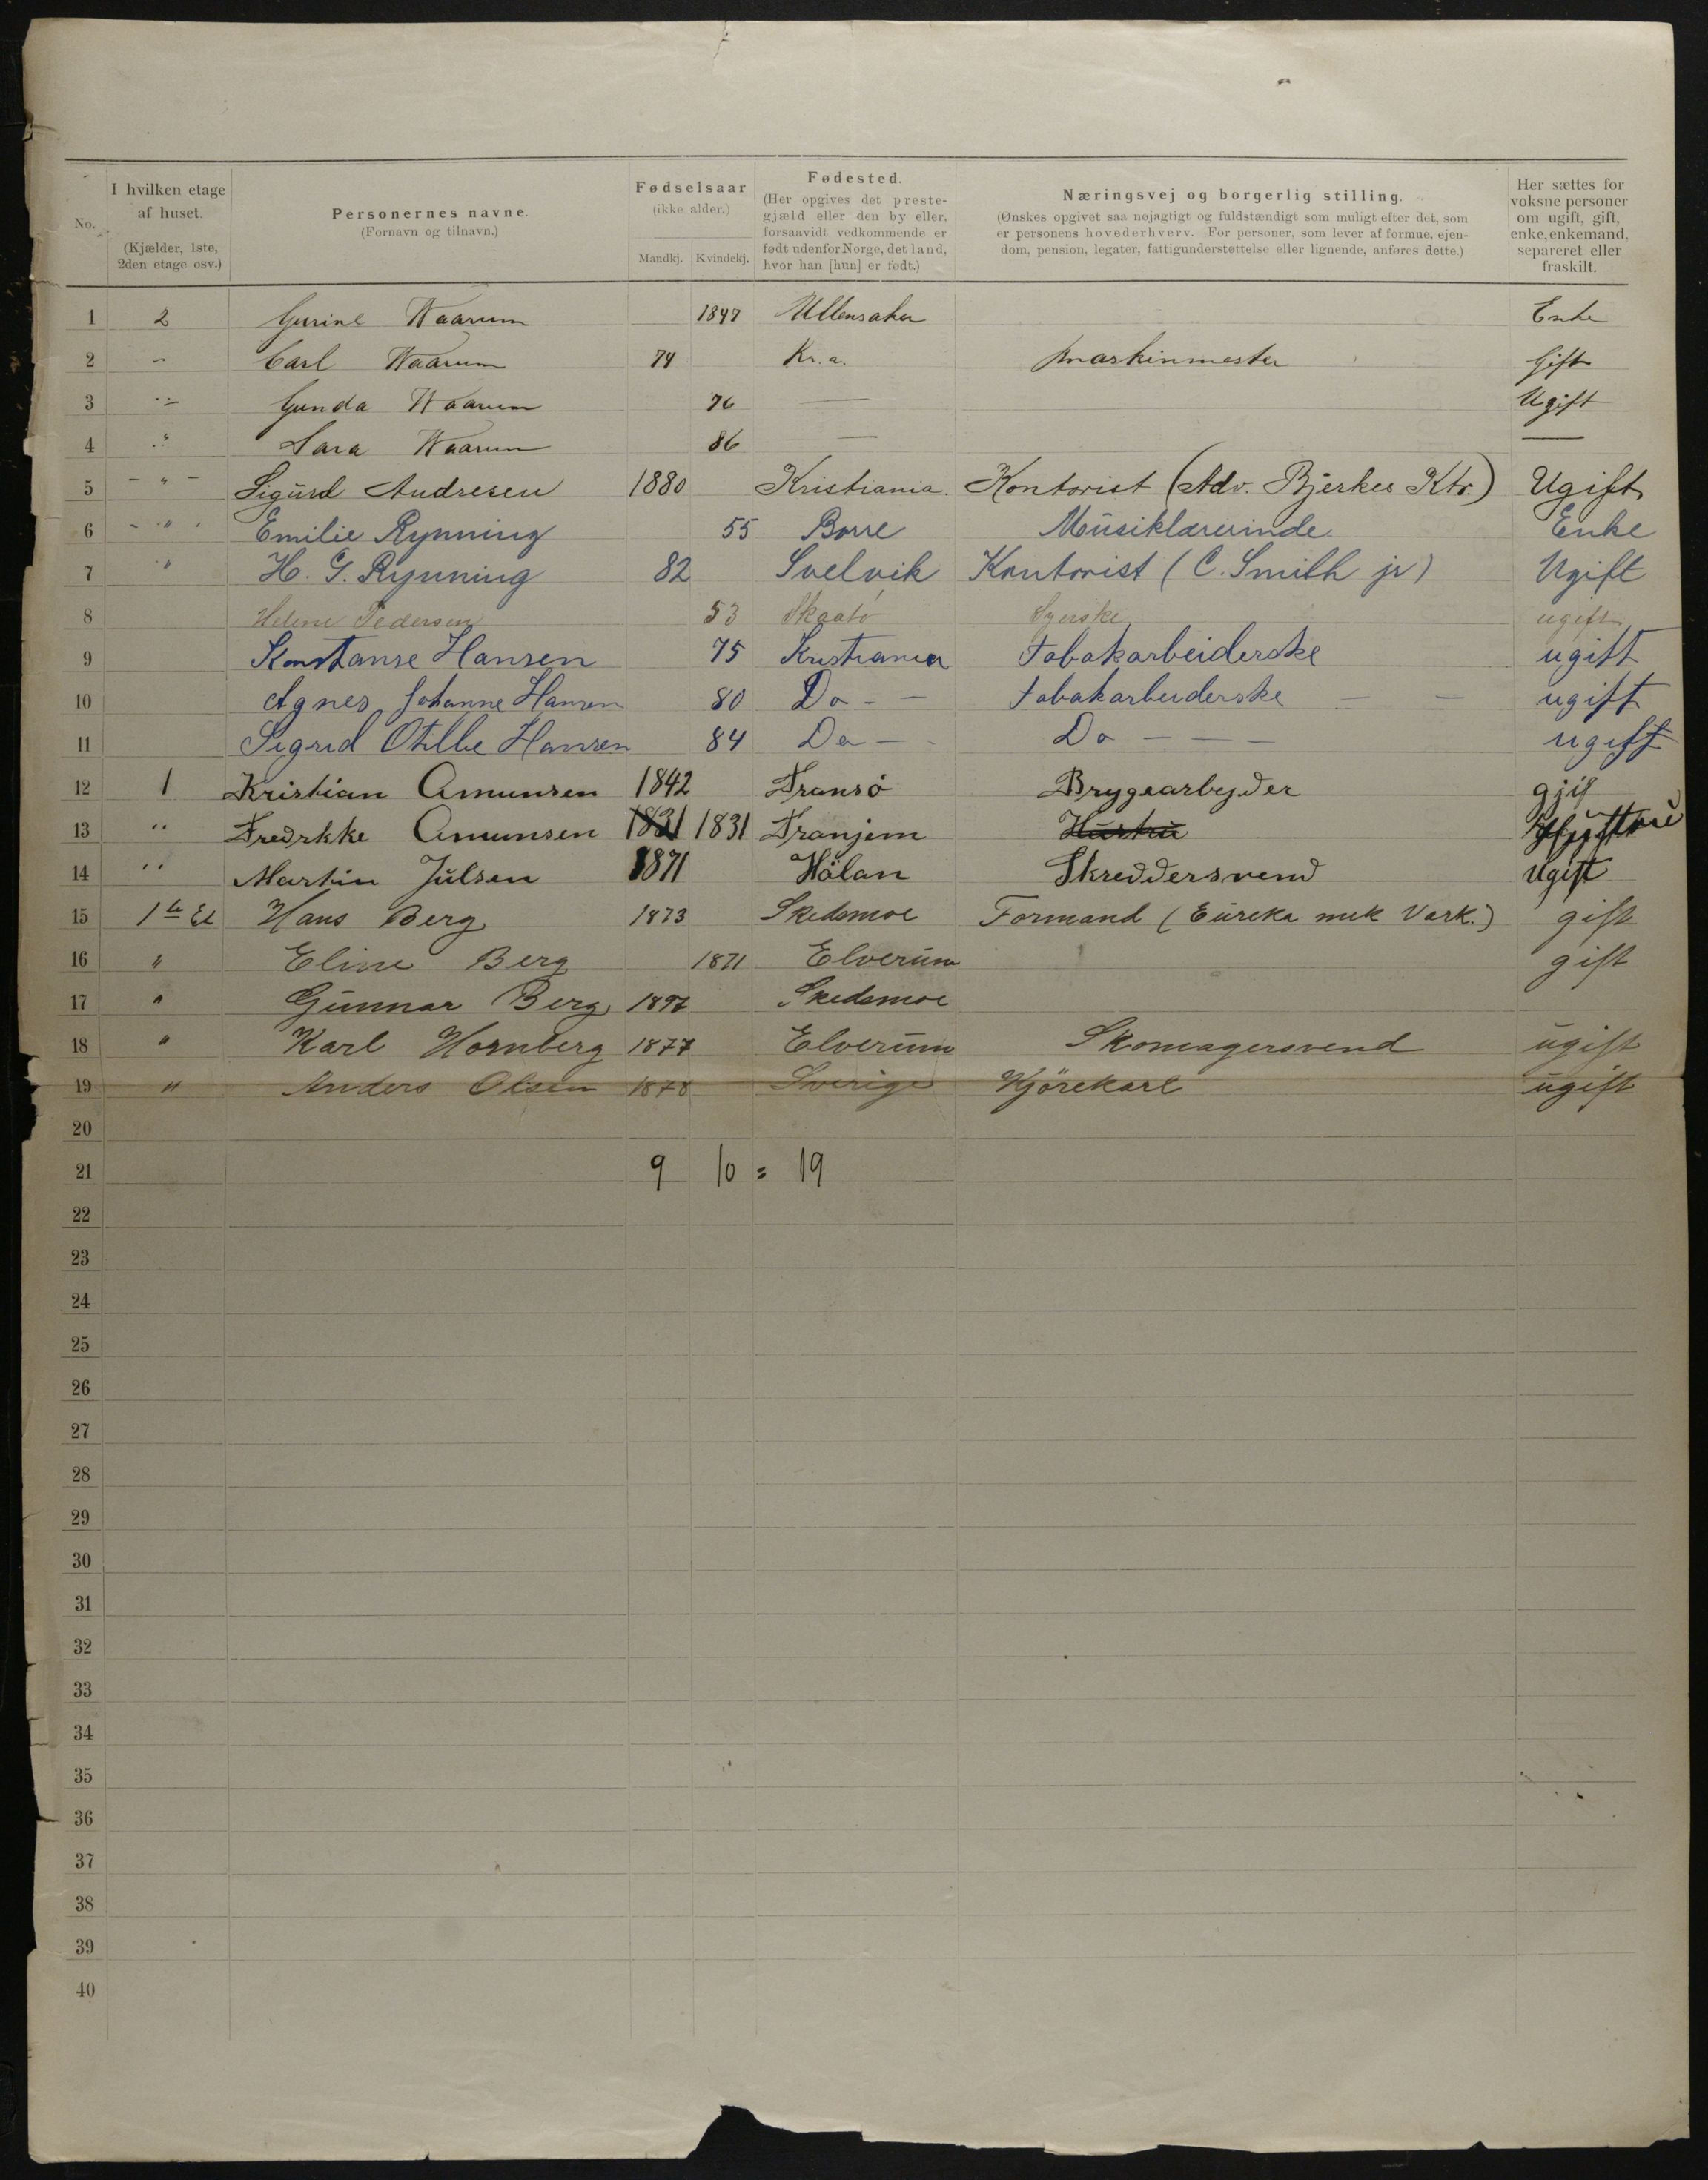 No.
I hvilken etage af huset.
(Kjælder, 1ste, 2den etage osv.)
Personernes navne.
(Fornavn og tilnavn.)
Fødselsaar
(ikke alder.)
Mandkj. Kvindekj.
Fødested.
(Her opgives det prestegjæld eller den by eller, forsaavidt vedkommende er født udenfor Norge, det land, hvor han [hun] er født.)
Næringsvej og borgerlig stilling.
(Ønskes opgivet saa nøjagtigt og fuldstændigt som muligt efter det, som er personens hovederhverv. For personer, som lever af formue, ejendom, pension, legater, fattigunderstøttelse eller lignende, anføres dette.)
Her sættes for voksne personer om ugift, gift, enke, enkemand, separeret eller fraskilt.
1 2 Gurine Waarum 1847 Ullensaker Enke
2 " Carl Waarum 74 Kr.a. maskinmester Gift
3 " Gunda Waarum 76 — Ugift
4 " Sara Waarum 86 — —
5 - " - Sigurd Andresen 1880 Kristiania. Kontorist (Adv. Bjerkes Ktr.) Ugift
6 - " - Emilie Rynning 55 Borre Musiklærerinde Enke
7 " H. G. Rynning 82 Svelvik Kontorist (C. Smith jr) Ugift
8 Helene Pedersen 53 Skaatö Syerske ugift
9 Konstanse Hansen 75 Kristiania Tobakarbeiderske ugift
10 Agnes Johanne Hansen 80 Do - — Tobakarbeiderske — — ugift
11 Sigrid Otilie Hansen 84 Do — - Do — — — ugift
12 1 Kristian Amunsen 1842 Transö Brygearbejder gjif
13 " Fredrkke Amunsen 1831 1831 Tranjem Hustru
14 " Martin Julsen 1871 Hölan Skreddersvend Ugift
15 1te Et Hans Berg 1873 Skedsmoe Formand (Eureka mek Værk.) gift
16 " Eline Berg 1871 Elverum gift
17 " Gunnar Berg 1897 Skedsmoe
18 " Karl Hornberg 1877 Elverum Skomagersvend ugift
19 " Anders Olsen 1878 Sverige Kjörekarl ugift
20
21 9 10 = 19
22
23
24
25
26
27
28
29
30
31
32
33
34
35
36
37
38
39
40